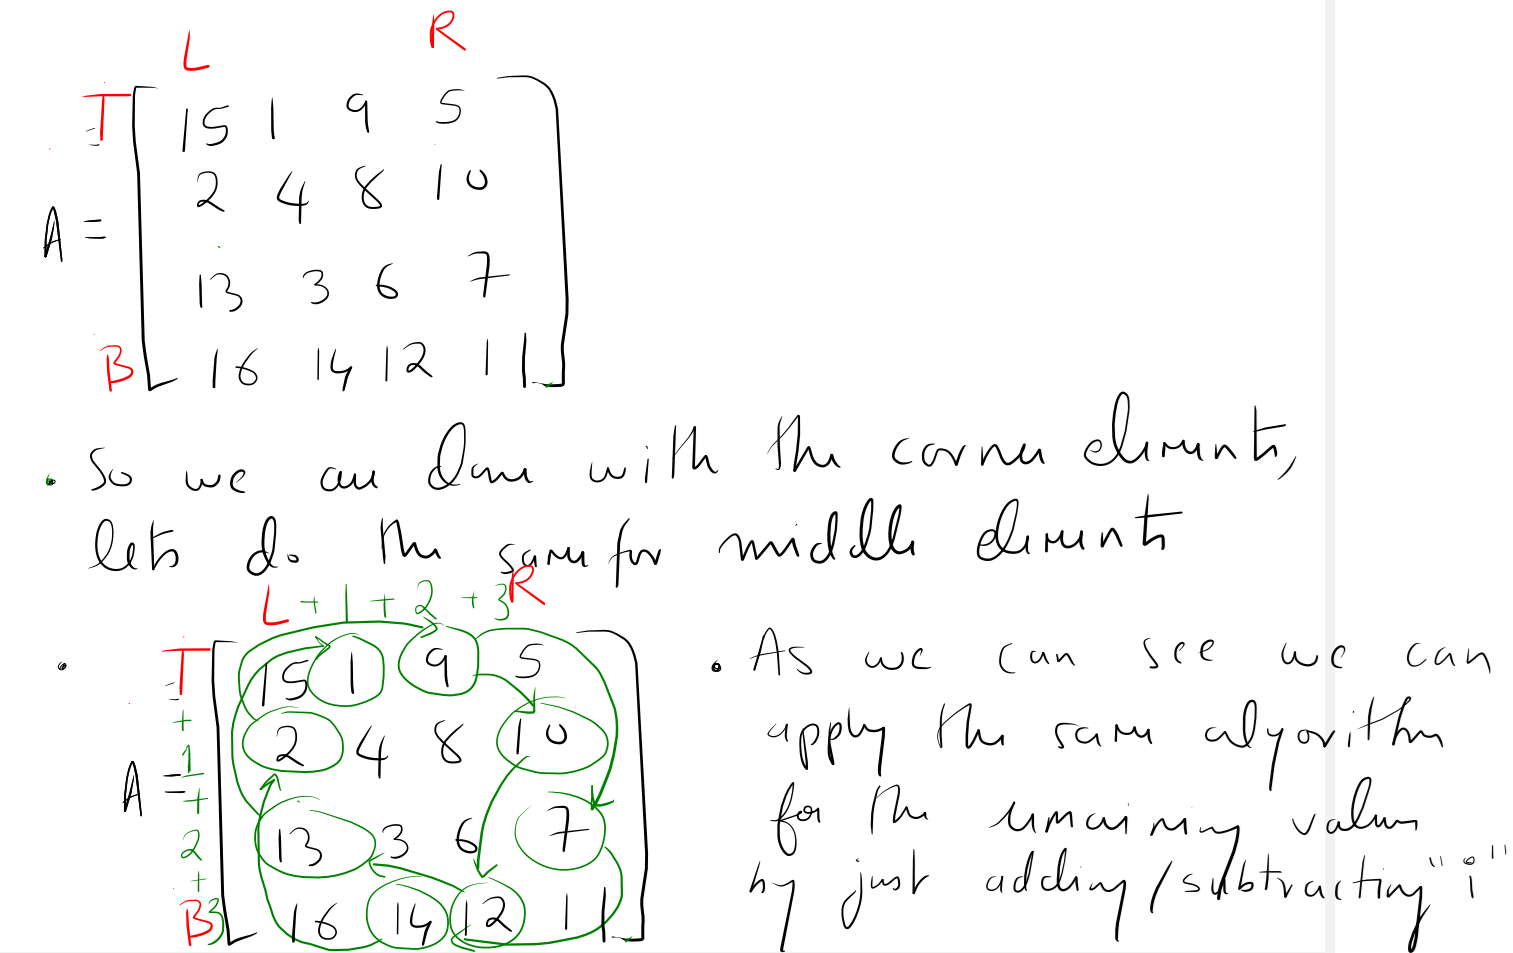 L R
T 15 1 9 5
2 4 8 10
A =
13 3 6 7
B 16 14 12 11
• So we are done with the corner elements,
lets do the same for middle elements
L + 1 + 2 + 3 R
• T 15 1 9 5
+
1 2 4 8 10
A =
+
2 13 3 6 7
+
B 3 16 14 12 11
• As we can see we can
apply the same algorithm
for the remaining values
by just adding/subtracting "i"